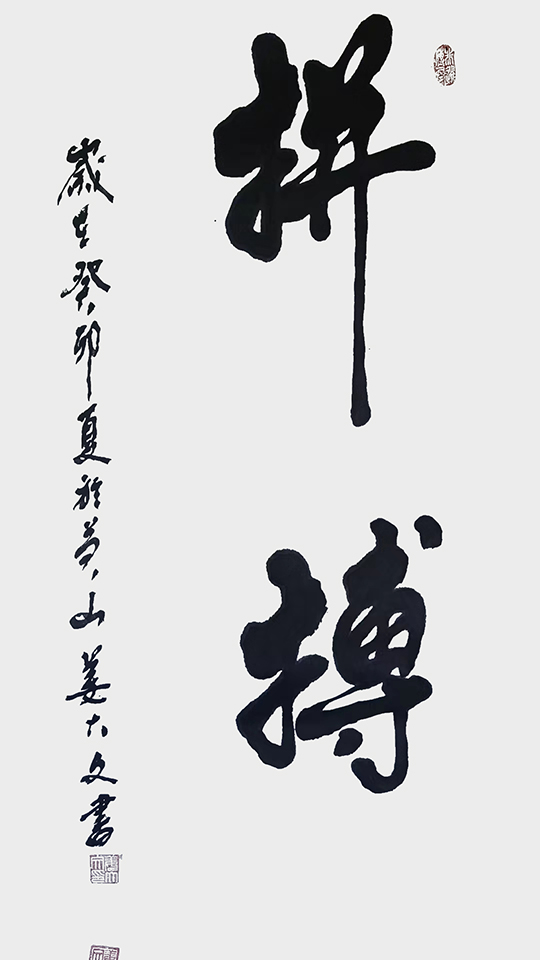 拼搏
歲在癸卯夏於苓山姜大文書